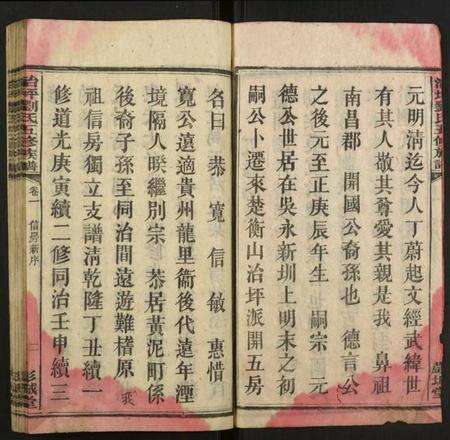 元明清迄今人丁蔚起文經武緯世
有其人敬其尊愛其親是我 鼻祖
南昌郡 開國公裔孫也 德言公
之後元至正庚辰年生 嗣宗 元
德公世居在吳永新圳上明末之初
嗣公卜遷來楚衡山治坪派開五房
名曰 恭 寬 信 敏 惠惜
寬公遠適貴州龍里衞後代遠年湮
境隔人睽繼別宗 恭居黃泥町係
後裔子孫至同治間遠遊難稽原 我
祖信房獨立支譜清乾隆丁丑續一
修道光庚寅續二修同治壬申續三
治坪劉氏五修族譜
卷一 信房新序
彭城堂